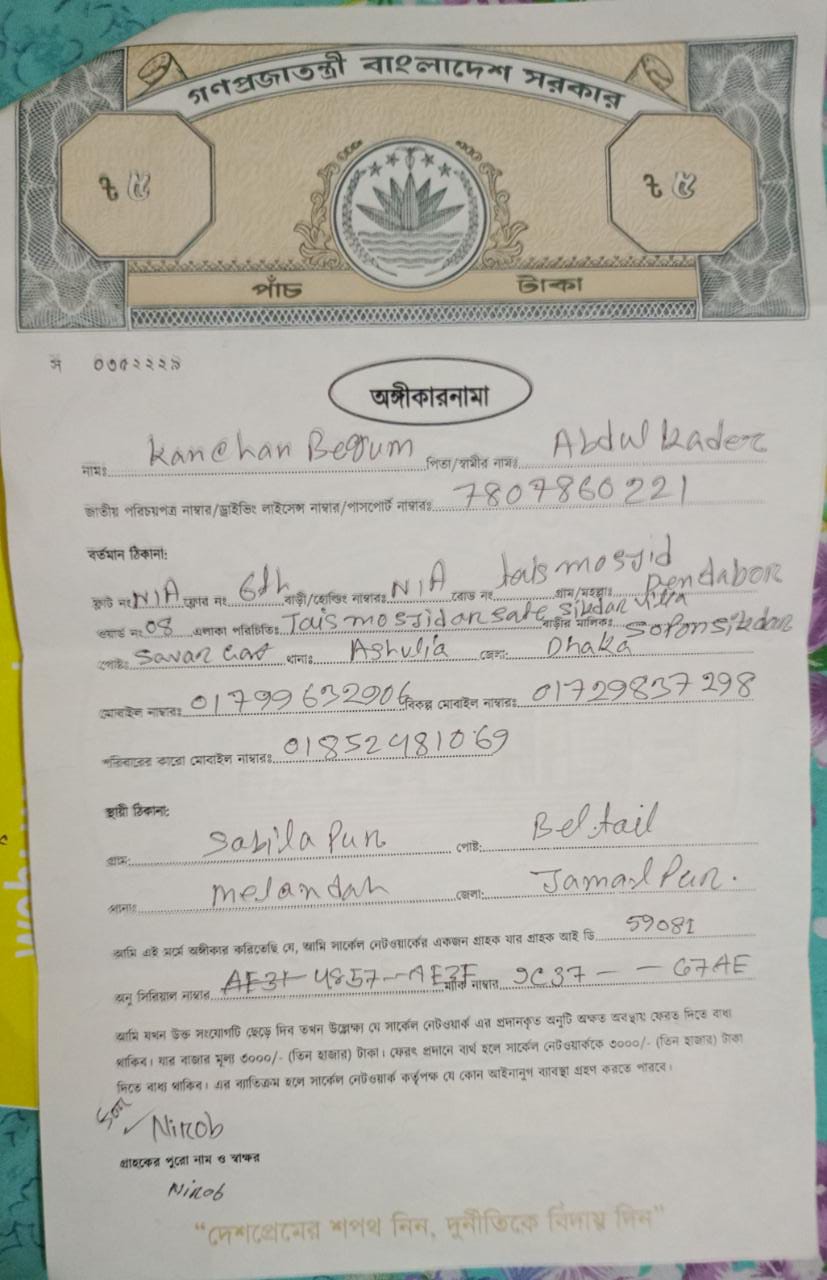 গণপ্রজাতন্ত্রী বাংলাদেশ সরকার
৳ ৫ ৳ ৫
পাঁচ টাকা
অঙ্গীকারনামা
নামঃ Kanchan Begum পিতা/স্বামীর নামঃ Abdul Kader
জাতীয় পরিচয়পত্র নাম্বার/ড্রাইভিং লাইসেন্স নাম্বার/পাসপোর্ট নাম্বারঃ 7807860221
বর্তমান ঠিকানা:
ফ্লাট নং N/A ফ্লোর নং 6th বাড়ী/হোল্ডিং নাম্বারঃ N/A রোড নং mosjid গ্রাম/মহল্লাঃ Pendabor
ওয়ার্ড নং 08 এলাকা পরিচিতিঃ mosjid বাড়ীর মালিকঃ
পোষ্টঃ থানাঃ Ashulia জেলা: Dhaka
মোবাইল নাম্বারঃ 01799632906 বিকল্প মোবাইল নাম্বারঃ 01729837298
পরিবারের কারো মোবাইল নাম্বারঃ 01852481069
স্থায়ী ঠিকানা:
গ্রাম: পোষ্ট: Beltail
থানাঃ Melandah জেলা: Jamalpur.
আমি এই মর্মে অঙ্গীকার করিতেছি যে, আমি সার্কেল নেটওয়ার্কের একজন গ্রাহক যার গ্রাহক আই ডি 59081
অনু সিরিয়াল নাম্বার 4857 নাম্বার 9C37 - - G7AE
আমি যখন উক্ত সংযোগটি ছেড়ে দিব তখন উল্লেক্ষ্য যে সার্কেল নেটওয়ার্ক এর প্রদানকৃত অনুটি অক্ষত অবস্থায় ফেরত দিতে বাধ্য
থাকিব। যার বাজার মূল্য ৩০০০/- (তিন হাজার) টাকা। ফেরৎ প্রদানে ব্যর্থ হলে সার্কেল নেটওয়ার্ককে ৩০০০/- (তিন হাজার) টাকা
দিতে বাধ্য থাকিব। এর ব্যতিক্রম হলে সার্কেল নেটওয়ার্ক কর্তৃপক্ষ যে কোন আইনানুগ ব্যবস্থা গ্রহণ করতে পারবে।
Son
Nirob
গ্রাহকের পুরো নাম ও স্বাক্ষর
Nirob
“দেশপ্রেমের শপথ নিন, দুর্নীতিকে বিদায় দিন”